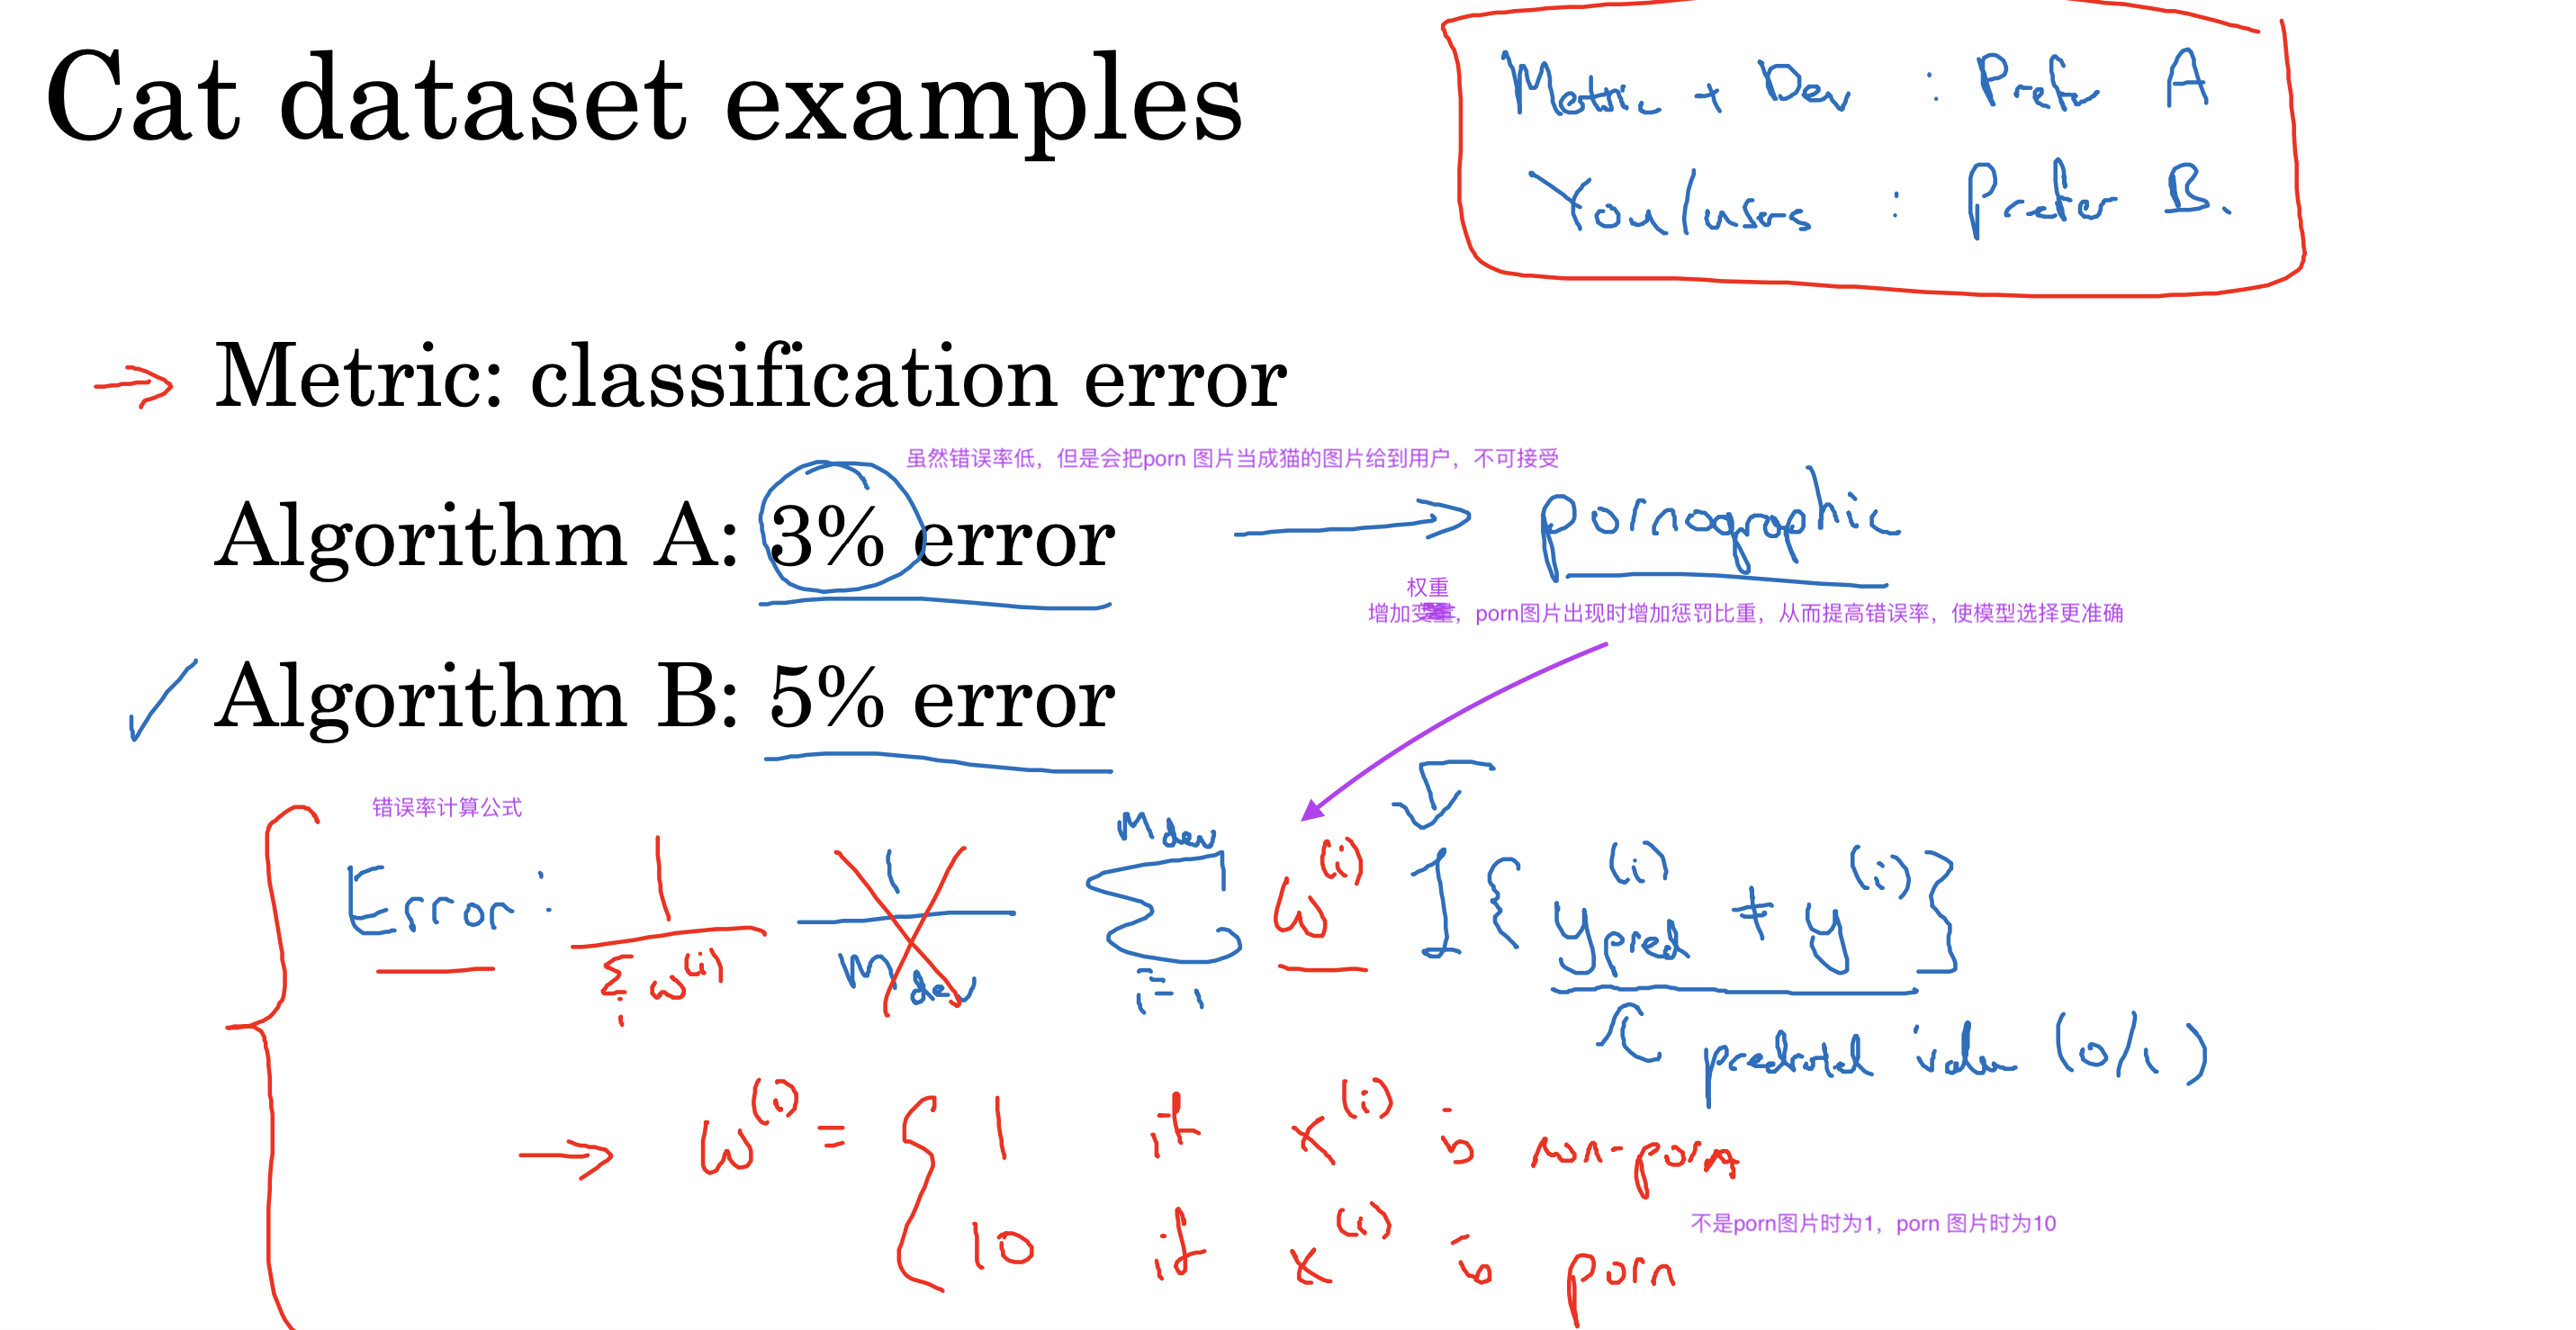 Cat dataset examples
Metric + Dev : Prefer A
You/users : Prefer B.
→ Metric: classification error
虽然错误率低，但是会把porn 图片当成猫的图片给到用户，不可接受
Algorithm A: 3% error → pornographic
权重
增加变量，porn图片出现时增加惩罚比重，从而提高错误率，使模型选择更准确
✓ Algorithm B: 5% error
错误率计算公式
Error: 1/∑i w(i) 1/mdev ∑i=1 mdev w(i) I{ypred(i) ≠ y(i)}
predicted value (0/1)
→ w(i) = { 1 if x(i) is non-porn
不是porn图片时为1，porn 图片时为10
10 if x(i) is porn